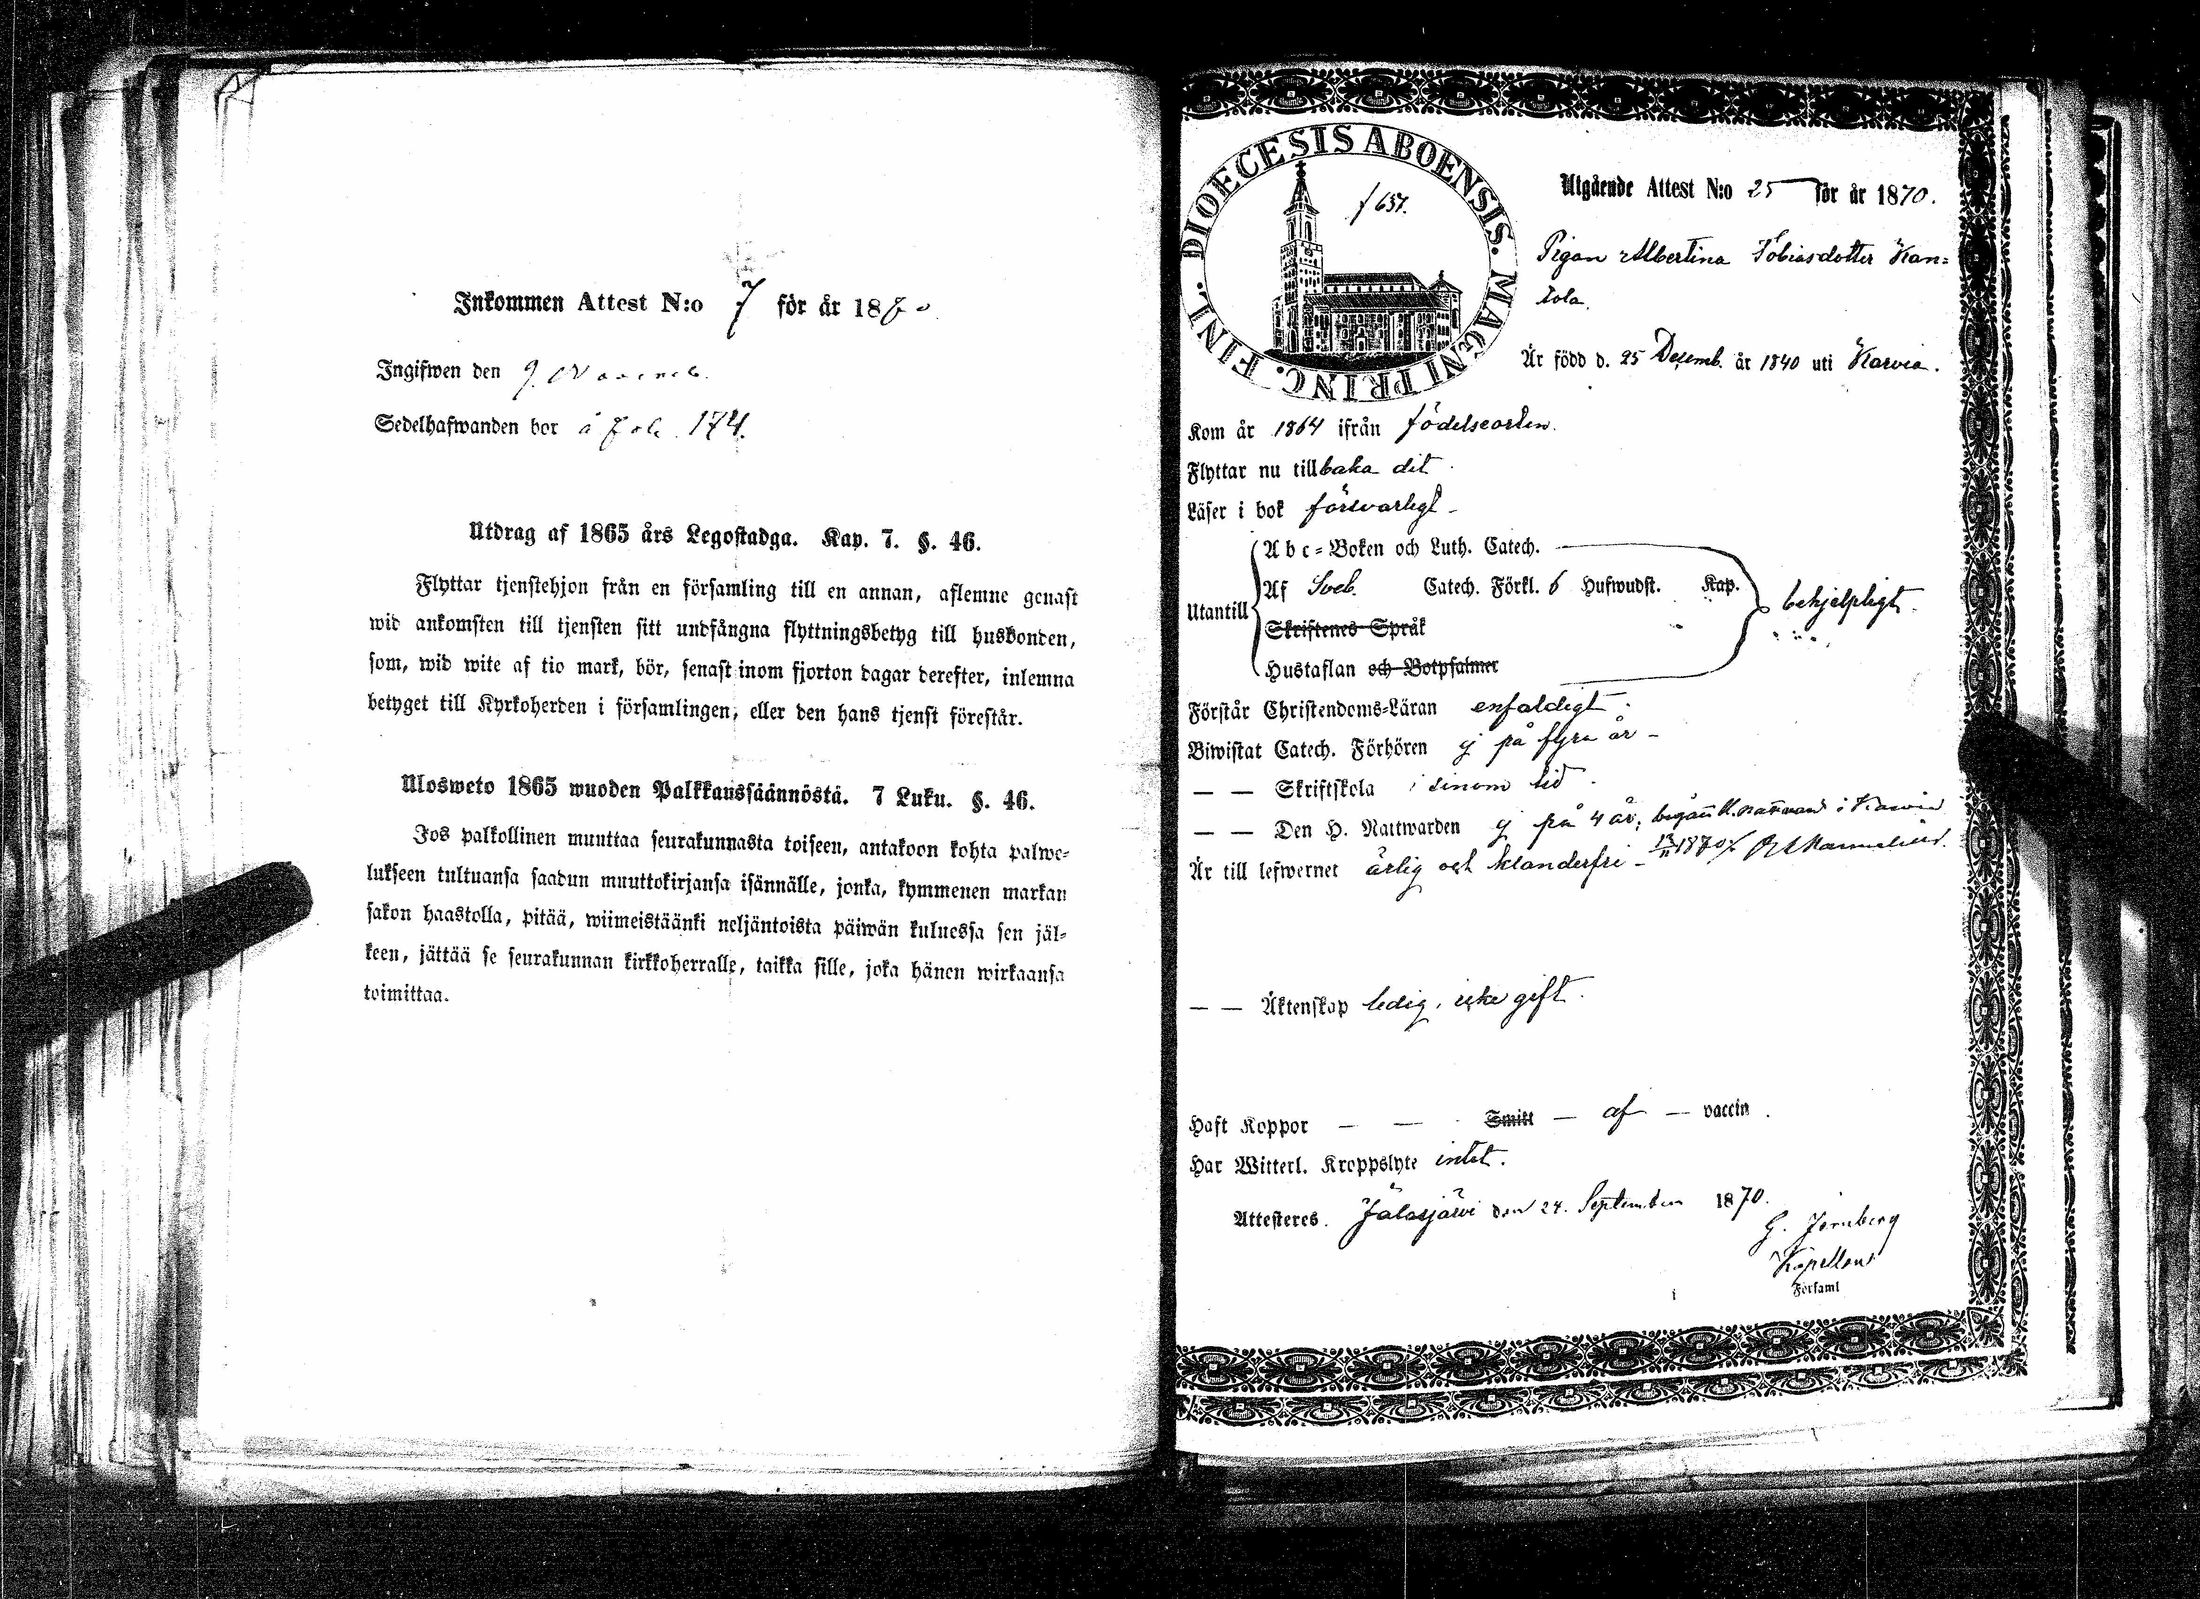 Inkommen Attest N:o 7 för år 1870
Ingifwen den 9. Novemb.
Sedelhafwanden bor å Fol. 174.
Utdrag af 1865 års Legostadga. Kap. 7. §. 46.
Flyttar tjenstehjon från en församling till en annan, aflemne genast
wid ankomsten till tjensten sitt undfångna flyttningsbetyg till husbonden,
som, wid wite af tio mark, bör, senast inom fjorton dagar derefter, inlemna
betyget till Kyrkoherden i församlingen, eller den hans tjenst förestår.
Ulosweto 1865 wuoden Palkkaussäännöstä. 7 Luku. §. 46.
Jos palkollinen muuttaa seurakunnasta toiseen, antakoon kohta palwe-
lukseen tultuansa saadun muuttokirjansa isännälle, jonka, kymmenen markan
sakon haastolla, pitää, wiimeistäänki neljäntoista päiwän kuluessa sen jäl-
keen, jättää se seurakunnan kirkkoherralle, taikka sille, joka hänen wirkaansa
toimittaa.
DIOECESIS ABOENSIS. MAGNI PRINC. FINL.
f 657.
Utgående Attest N:o 25 för år 1870.
Pigan Albertina Tobiasdotter Kan=
tola.
Är född d. 25 Desemb. år 1840 uti Karvia.
Kom år 1864 ifrån födelseorten.
Flyttar nu tillbaka dit.
Läser i bok försvarligt -
Abc-Boken och Luth. Catech.
Utantill Af Sveb. Catech. Förkl. 6 Hufwudst. Kap. behjelpligt.
Skriftenes Språk
Hustaflan och Botpsalmer
Förstår Christendoms-Läran enfaldigt.
Biwistat Catech. Förhören ej på fyra år -
— — Skriftskola i sinom tid.
— — Den H. Nattwarden ej på 4 år; begått H. nattvard i Karvia
13/11 1870/
Är till lefwernet ärlig och klanderfri -
— — Äktenskap ledig, icke gift.
Haft Koppor — — Smitt — af — vaccin.
Har Witterl. Kroppslyte intet.
Attesteres. Jalasjärvi den 24. September 1870.
G. Jernberg
Kapellans
Församl